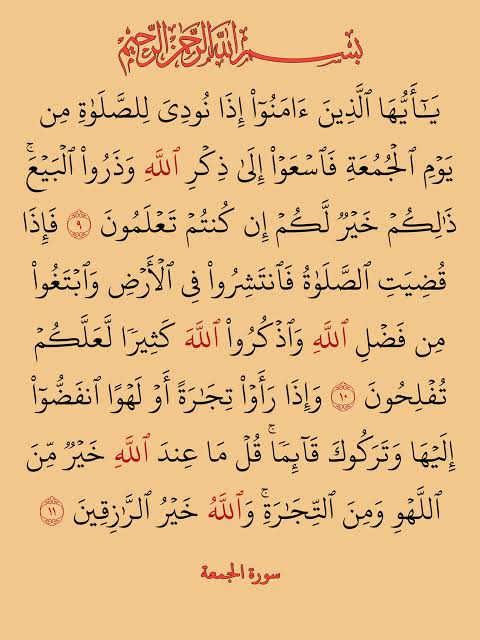 بسم الله الرحمن الرحيم
يَـٰٓأَيُّهَا ٱلَّذِينَ ءَامَنُوٓا۟ إِذَا نُودِىَ لِلصَّلَوٰةِ مِن
يَوْمِ ٱلْجُمُعَةِ فَٱسْعَوْا۟ إِلَىٰ ذِكْرِ ٱللَّهِ وَذَرُوا۟ ٱلْبَيْعَ ۚ
ذَٰلِكُمْ خَيْرٌ لَّكُمْ إِن كُنتُمْ تَعْلَمُونَ ٩ فَإِذَا
قُضِيَتِ ٱلصَّلَوٰةُ فَٱنتَشِرُوا۟ فِى ٱلْأَرْضِ وَٱبْتَغُوا۟
مِن فَضْلِ ٱللَّهِ وَٱذْكُرُوا۟ ٱللَّهَ كَثِيرًا لَّعَلَّكُمْ
تُفْلِحُونَ ١٠ وَإِذَا رَأَوْا۟ تِجَـٰرَةً أَوْ لَهْوًا ٱنفَضُّوٓا۟
إِلَيْهَا وَتَرَكُوكَ قَآئِمًا ۚ قُلْ مَا عِندَ ٱللَّهِ خَيْرٌ مِّنَ
ٱللَّهْوِ وَمِنَ ٱلتِّجَـٰرَةِ ۚ وَٱللَّهُ خَيْرُ ٱلرَّٰزِقِينَ ١١
سورة الجمعة